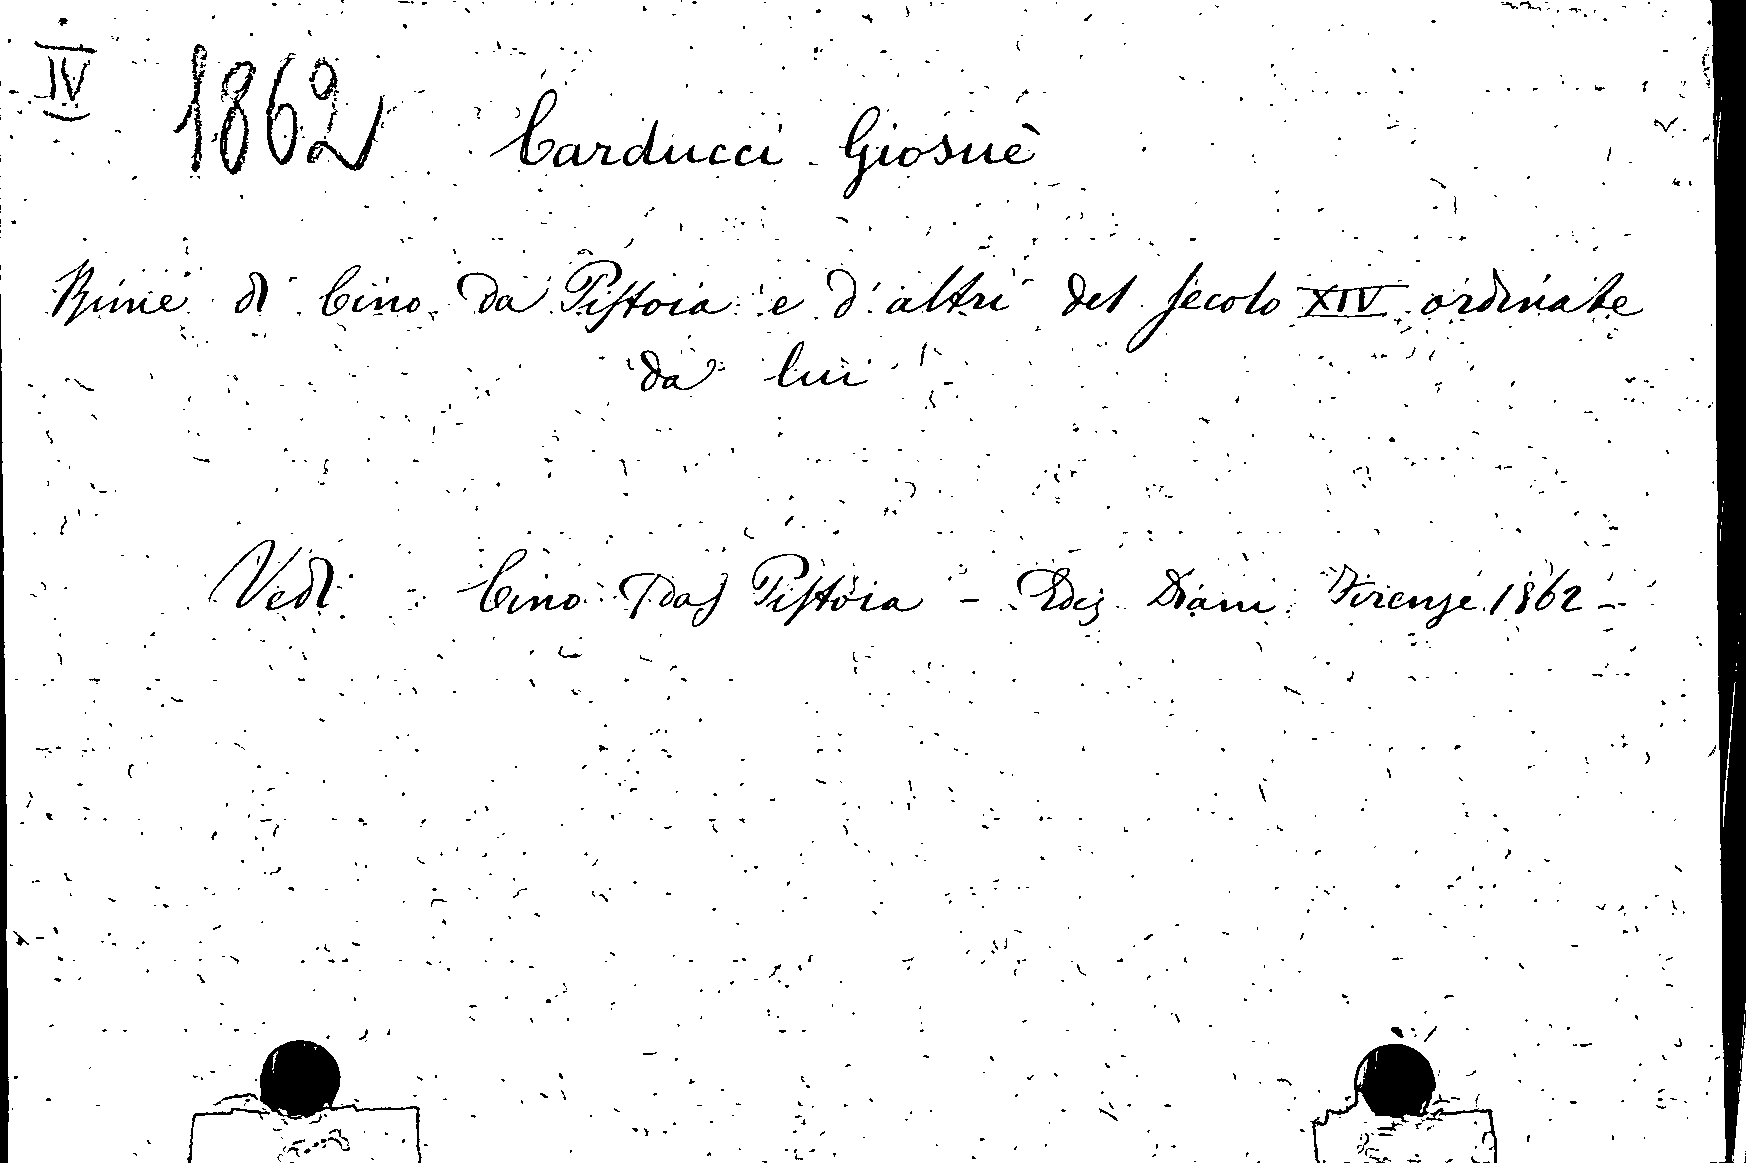 IV 1862 Carducci Giosuè
Rime di Cino da Pistoia e d'altri del secolo XIV ordinate
da lui
Vedi Cino (da) Pistoia - Ediz Diani Firenze 1862 -